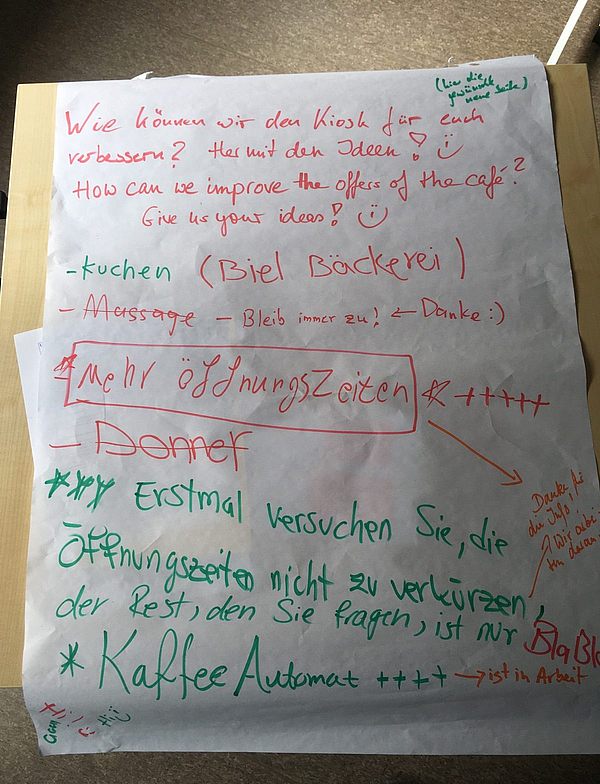 (hier die
gewünschte
neue Seite)
Wie können wir den Kiosk für euch
verbessern? Her mit den Ideen! :)
How can we improve the offers of the café?
Give us your ideas! :)
- Kuchen (Biel Bäckerei)
- Massage - Bleib immer zu! ← Danke :)
- Mehr öffnungszeiten * +++++
- Donner
*** Erstmal versuchen Sie, die
Öffnungszeiten nicht zu verkürzen,
der Rest, den Sie fragen, ist nur BlaBla
Danke für
die Info!
Wir
daran
* Kaffee Automat ++++ → ist in Arbeit
Hi! :)
Hi :)